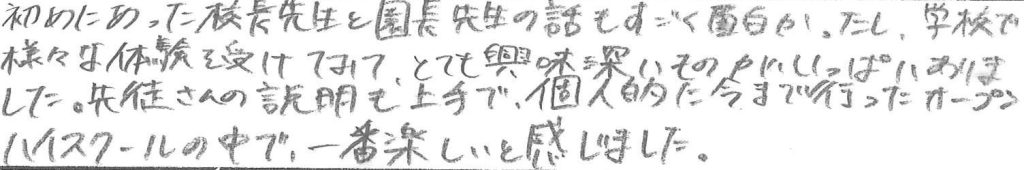 初めにあった校長先生と園長先生の話もすごく面白かったし、学校で
様々な体験を受けてみて、とても興味深いものがいっぱいありま
した。生徒さんの説明も上手で、個人的に今まで行ったオープン
ハイスクールの中で、一番楽しいと感じました。